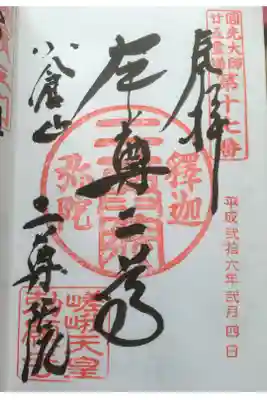 圓光大師
廿五霊場
第十七番
奉拝
平成弐拾六年弐月四日
本尊二尊
釋迦
弥陀
小倉山
二尊院
嵯峨天皇